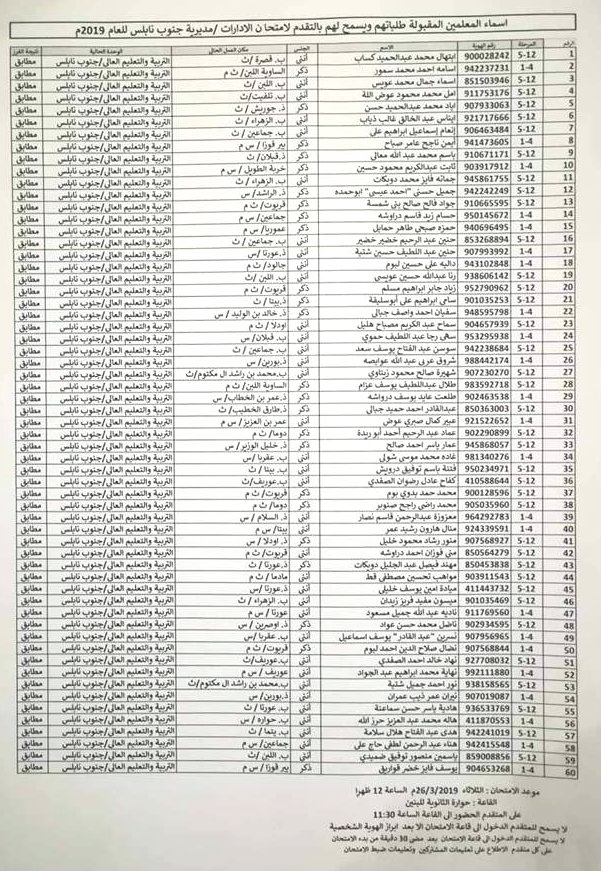 اسماء المعلمين المقبولة طلباتهم ويسمح لهم بالتقدم لامتحان الادارات /مديرية جنوب نابلس للعام 2019م
الرقم المرحلة رقم الهوية الاسم الجنس مكان العمل الحالي الوحدة الحالية نتيجة الفرز
1 5-12 900028242 ابتهال محمد عبدالحميد كساب أنثى ب. قصرة /ث التربية والتعليم العالي/جنوب نابلس مطابق
2 1-4 942237231 اسامه احمد محمد سمور ذكر الساوية اللبن/ ث م التربية والتعليم العالي/جنوب نابلس مطابق
3 5-12 851503946 اسماء جمال محمد عويس أنثى ب. اللبن /ث التربية والتعليم العالي/جنوب نابلس مطابق
4 5-12 911753176 امل محمد محمود عوض الله أنثى ب. تلفيت/ث التربية والتعليم العالي/جنوب نابلس مطابق
5 5-12 907933063 اياد محمد عبدالحميد حسن ذكر ذ. جوريش /ث التربية والتعليم العالي/جنوب نابلس مطابق
6 5-12 921717666 ايناس عبد الخالق غالب ذياب أنثى ب. الزهراء / ث التربية والتعليم العالي/جنوب نابلس مطابق
7 5-12 906463484 إنعام إسماعيل ابراهيم علي أنثى ب. جماعين /ث التربية والتعليم العالي/جنوب نابلس مطابق
8 1-4 941473605 أيمن ناجح عامر صباح ذكر بير قوزا / س م التربية والتعليم العالي/جنوب نابلس مطابق
9 5-12 910671171 باسم محمد عبد الله معالي ذكر ذ.قبلان/ ث التربية والتعليم العالي/جنوب نابلس مطابق
10 1-4 903917912 ثابت عبدالكريم محمود حسين ذكر خربة الطويل / س م التربية والتعليم العالي/جنوب نابلس مطابق
11 5-12 945861755 جمانه فايز محمد دويكات أنثى ب. الزهراء / ث التربية والتعليم العالي/جنوب نابلس مطابق
12 5-12 942242249 جميل حسني "احمد عيسى" ابوحمده ذكر ذ. الراشد/ س التربية والتعليم العالي/جنوب نابلس مطابق
13 5-12 910665595 جواد فالح صالح بني شمسة ذكر قريوت/ ث م التربية والتعليم العالي/جنوب نابلس مطابق
14 1-4 950145672 حسام زيد قاسم دراوشه ذكر جماعين/ س م التربية والتعليم العالي/جنوب نابلس مطابق
15 1-4 940696495 حمزه صبحي طاهر حمايل ذكر عموريا/ س م التربية والتعليم العالي/جنوب نابلس مطابق
16 5-12 853268894 حنين عبد الرحيم خضير خضير أنثى ب. جماعين / ث التربية والتعليم العالي/جنوب نابلس مطابق
17 1-4 907993992 حنين عبد اللطيف حسين شتية أنثى ذ. عورتا/ س التربية والتعليم العالي/جنوب نابلس مطابق
18 1-4 943102848 داليه علي حسين لبوم أنثى جالود/ ث م التربية والتعليم العالي/جنوب نابلس مطابق
19 5-12 938606142 رنا عبدالله حسين عويسي أنثى ب. اللبن / ث التربية والتعليم العالي/جنوب نابلس مطابق
20 5-12 952790962 زياد جابر ابراهيم مسلم ذكر قريوت/ ث م التربية والتعليم العالي/جنوب نابلس مطابق
21 5-12 901035253 سامي ابراهيم علي أبوسليقة ذكر ذ.بيتا / ث التربية والتعليم العالي/جنوب نابلس مطابق
22 1-4 948595798 سفيان احمد واصف جبالي ذكر ذ. خالد بن الوليد / س التربية والتعليم العالي/جنوب نابلس مطابق
23 5-12 904657939 سماح عبد الكريم مصباح هليل أنثى اودلا / ث م التربية والتعليم العالي/جنوب نابلس مطابق
24 1-4 953295938 سهى رجا عبد اللطيف حموي أنثى ب. قبلان / س التربية والتعليم العالي/جنوب نابلس مطابق
25 5-12 942238684 سوسن عبد الفتاح يوسف سعد أنثى ب. جماعين / ث التربية والتعليم العالي/جنوب نابلس مطابق
26 1-4 988442174 شروق عربي عبد الله عوايصه أنثى ذ.بورين/ س التربية والتعليم العالي/جنوب نابلس مطابق
27 5-12 907230270 شهيرة صالح محمود زيتاوي أنثى ب.محمد بن راشد ال مكتوم/ث التربية والتعليم العالي/جنوب نابلس مطابق
28 5-12 983592718 طلال عبداللطيف يوسف عزام ذكر الساوية اللبن/ ث م التربية والتعليم العالي/جنوب نابلس مطابق
29 1-4 942068438 طلعت عايد يوسف درواشه ذكر ذ.عمر بن الخطاب/ س التربية والتعليم العالي/جنوب نابلس مطابق
30 5-12 850363003 عبدالقادر احمد حميد جبالي ذكر ذ.طارق الخطيب/ ث التربية والتعليم العالي/جنوب نابلس مطابق
31 1-4 921522652 عبير كمال صبري عوض أنثى عمر بن العزيز / س م التربية والتعليم العالي/جنوب نابلس مطابق
32 5-12 902290899 عماد عبد الرحيم أحمد أبو ريدة ذكر دوما/ ث م التربية والتعليم العالي/جنوب نابلس مطابق
33 5-12 945868057 عمار باسر احمد صالح ذكر ذ. خليل الوزير/ س التربية والتعليم العالي/جنوب نابلس مطابق
34 1-4 981340276 غاده محمد موسى شولي أنثى ب. عقربا / س التربية والتعليم العالي/جنوب نابلس مطابق
35 5-12 950234971 فتنة باسم توفيق درويش أنثى ب. بيتا / ث التربية والتعليم العالي/جنوب نابلس مطابق
36 5-12 410588644 كفاح عادل رضوان الصفدي أنثى ب.عوريف/ث التربية والتعليم العالي/جنوب نابلس مطابق
37 5-12 900128596 محمد حمد بدوي بوم ذكر قريوت/ ث م التربية والتعليم العالي/جنوب نابلس مطابق
38 5-12 905035960 محمد راضي راجح صنوبر ذكر دوما/ ث م التربية والتعليم العالي/جنوب نابلس مطابق
39 1-4 964292783 معزوزة عبدالرحمن قاسم نصار أنثى ذ. السلام / س التربية والتعليم العالي/جنوب نابلس مطابق
40 1-4 924339591 منال هارون رشيد عمر أنثى بيتا/ س م التربية والتعليم العالي/جنوب نابلس مطابق
41 5-12 907568927 منور رشاد محمود خليل ذكر ذ. اودلا / س التربية والتعليم العالي/جنوب نابلس مطابق
42 5-12 850564279 منى فوزان احمد دراوشه أنثى قريوت/ ث م التربية والتعليم العالي/جنوب نابلس مطابق
43 5-12 850453838 مهند فيصل عبد الجليل دويكات ذكر ذ.عورتا / ث التربية والتعليم العالي/جنوب نابلس مطابق
44 5-12 903911543 مواهب تحسين مصطفى قط أنثى مادما / ث م التربية والتعليم العالي/جنوب نابلس مطابق
45 5-12 411443732 ميادة امين يوسف خليلي أنثى ذ.عورتا / س التربية والتعليم العالي/جنوب نابلس مطابق
46 5-12 901035469 ميسون مفيد فريز زيدان أنثى ب. الزهراء / ث التربية والتعليم العالي/جنوب نابلس مطابق
47 1-4 911769560 ناديه عبد الله جميل مسعود أنثى ذ.عورتا / س التربية والتعليم العالي/جنوب نابلس مطابق
48 5-12 902934595 ناصل محمد حسن عواد ذكر ذ. اوصرين / س التربية والتعليم العالي/جنوب نابلس مطابق
49 1-4 907956965 نسرين "عبد القادر" يوسف اسماعيل أنثى ب. عقربا /س التربية والتعليم العالي/جنوب نابلس مطابق
50 1-4 907568844 نضال صلاح الدين احمد لبوم ذكر قريوت/ ث م التربية والتعليم العالي/جنوب نابلس مطابق
51 5-12 927708032 نهاد خالد احمد الصفدي أنثى ب.عوريف/ث التربية والتعليم العالي/جنوب نابلس مطابق
52 1-4 992111880 نهاية محمد ابراهيم عبد الجواد أنثى عوريف / س م التربية والتعليم العالي/جنوب نابلس مطابق
53 5-12 938158565 نور احمد جميل شتية أنثى ب.محمد بن راشد ال مكتوم/ث التربية والتعليم العالي/جنوب نابلس مطابق
54 1-4 907019087 نيران عمر ذيب عمران أنثى ذ.بورين/س التربية والتعليم العالي/جنوب نابلس مطابق
55 5-12 936533769 هادية باسر حسن سماعنة أنثى ب. عورتا / ث التربية والتعليم العالي/جنوب نابلس مطابق
56 1-4 411870553 هاله محمد عبد العزيز حرز الله أنثى ب. حواره / س التربية والتعليم العالي/جنوب نابلس مطابق
57 5-12 942241019 هدى عبد الفتاح هلال سلامة أنثى ب. يتما / ث التربية والتعليم العالي/جنوب نابلس مطابق
58 1-4 942415548 هناء عبد الرحمن لطفي حاج علي أنثى جماعين/ س م التربية والتعليم العالي/جنوب نابلس مطابق
59 5-12 859008856 ياسمين منصور توفيق صميدي أنثى ب. اللبن / ث التربية والتعليم العالي/جنوب نابلس مطابق
60 1-4 904653268 يوسف فايز خضر قواريق ذكر بير قوزا / س م التربية والتعليم العالي/جنوب نابلس مطابق
موعد الامتحان : الثلاثاء 26/3/2019م الساعة 12 ظهرا
القاعة : حوارة الثانوية للبنين
على المتقدم الحضور الى القاعة الساعة 11:30
لا يسمح للمتقدم الدخول الى قاعة الامتحان الا بعد ابراز الهوية الشخصية
لا يسمح للمتقدم الدخول الى قاعة الامتحان بعد مضي 30 دقيقة من بدء الامتحان
على كل متقدم الاطلاع على تعليمات المشتركين وتعليمات ضبط الامتحان